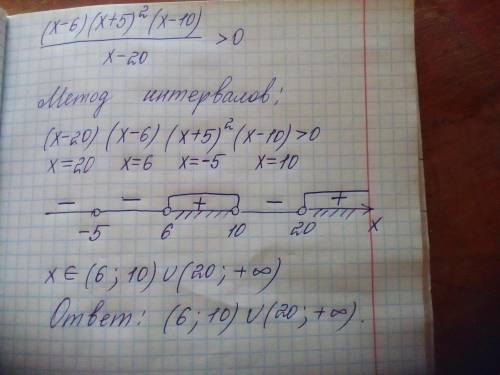 (x-6)(x+5)²(x-10)
x-20 >0
Метод интервалов:
(x-20) (x-6) (x+5)²(x-10)>0
x=20 x=6 x=-5 x=10
- - + - +
-5 6 10 20 x
x∈(6; 10)∪(20; +∞)
Ответ: (6; 10)∪(20; +∞).